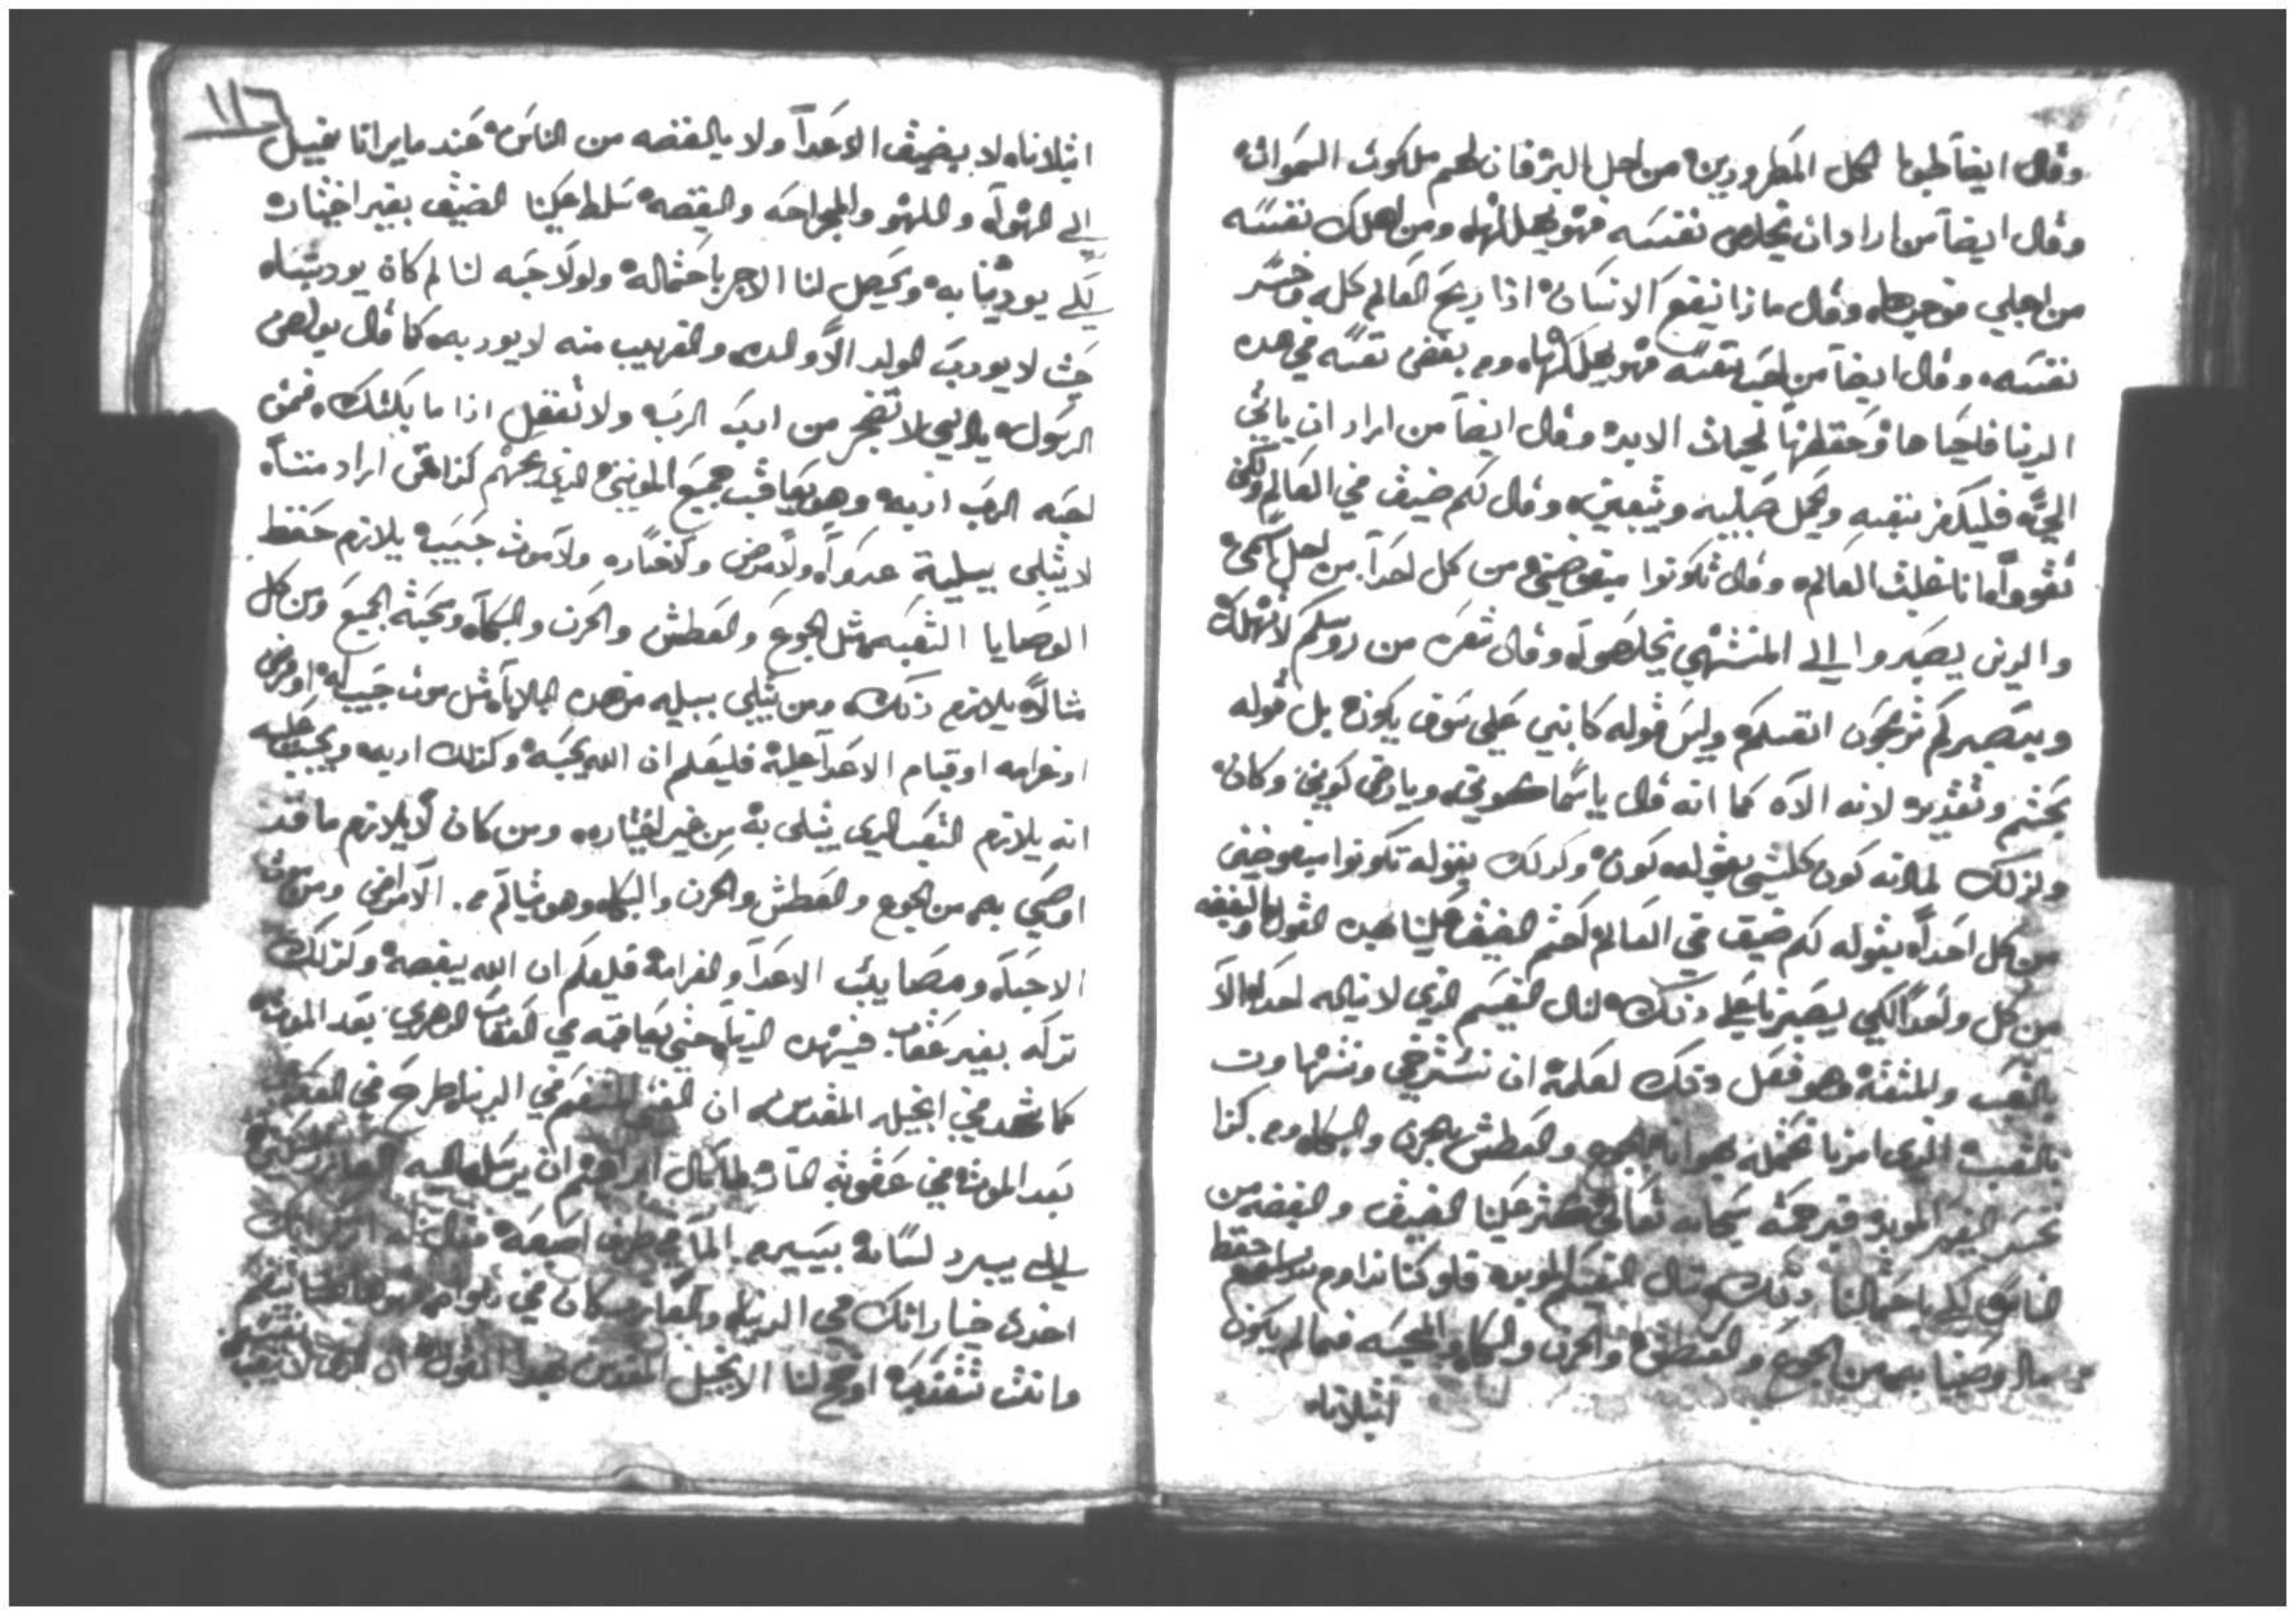 وقال ايضاً طوبا لكل المطرودين من اجل البر فان لهم ملكوت السموات
وقال ايضاً من اراد ان يخلص نفسه فهو يهلكها ومن اهلك نفسه
من اجلي فهو وقال ماذا ينفع الانسان اذا ربح العالم كله وخسر
نفسه وقال ايضاً من احب نفسه فهو يهلكها ومن بغض نفسه في هده
الدنيا فليحياها وحفظها لحيات الابده وقال ايضاً من اراد ان ياتي
اليّ فليكفر بنفسه ويحمل صليبه ويتبعني وقال لكم ضيق في العالم ولكن
ثقووا انا غلبت العالم وقال تكونوا مبغوضين من كل احداً من اجل اسمي
والدين يصبروا الى المنتهى يخلصوا وقال شعره من روسكم لا تهلك
وبصبركم تربحون انفسكم وليس قوله كانبي على سوف يكون بل قوله
بحتم وتقديره لانه الاه كما انه قال يا سما ويا ارض كوني وكان
ولدلك لما انه كون كلشي بقوله كون وكدلك بقوله تكونوا مبغوضين
من كل احداً بقوله لكم ضيق في العالم احتم الضيق علينا بهده القول والبغضه
من كل واحداً لكي بصبرنا على دلك ننال النعيم الدي لا يناله احداً الا
بالتعب والمشقه وهو فعل دلك لعلمه ان نسترخي ونتهاون
بالتعب الدي امرنا نحمله بهوانا بالجوع والعطش والحزن والبكا كدا
نخسر النعيم الموبد فبرحمته سبحانه تعالى علينا الضيق والبغضه من
الناس لكي باحتمالنا دلك ننال النعيم الموبد فلو كنا نداوم حفظ
ما اوصينا به من الجوع والعطش والحزن والبكا والمحبه فما لم يكون
ابتلاناه
١١٦
ابتلاناه لا بضيق الاعداً ولا بالبغضه من الناس عند ما يرانا نميل
الى الهوآ واللهو والراحه والبغضه سلط علينا الضيق بغير اختيارنا
لكي يودبنا به ويحصل لنا الاجر باحتماله ولولا حبه لنا لم كان يودبنا
حيت لا يودب الولد الا والده والغريب منه لا يودبه كما قال بولص
الرسول يا ابني لا تضجر من ادب الرب ولا تغفل ادا ما بكتك فمن
احبه الرب ادبه وهو يعاقب جميع البنين الدي يحبهم كدا من اراد منا
لا يبتلى ببلية عدوا ولا مرض ولا خساره ولا موت حبيبه يلازم حفظ
الوصايا التعبه مثل الجوع والعطش والحزن والبكا ومحبة الجميع ومن كل
مثالاً يلازم دلك ومن يبتلى ببليه من هده البلايا مثل موت حبيب له او مرض
او غرامه او قيام الاعدا عليه فليعلم ان الله يحبه وكدلك ادبه
انه يلازم التعب الدي يبتلى به من غير اختياره ومن كان لا يلازم ما قد
اوصي به من الجوع والعطش والحزن والبكا وهو سالم من الامراض ومن موت
الاحبا ومصايب الاعدا والغرامة فليعلم ان الله يبغضه وكدلك
تركه بغير عقاب في هده الدنيا حتى يعاقبه في العقاب الدهري بعد الموت
كما شهد في انجيله المقدس ان الغني المتنعم في الدنيا طرح في العداب
بعد الموت في عقوبة النار ان يرسل اليه العازر
لكي يبرد لسانه بيسير من الما من طرف اصبعه فقال له
اخدت خياراتك في الدنيا والعازر كان في فهو هاهنا يتنعم
وانت تتعدب اوضح لنا الانجيل المقدس بهدا القول ان الدي لا يتعب